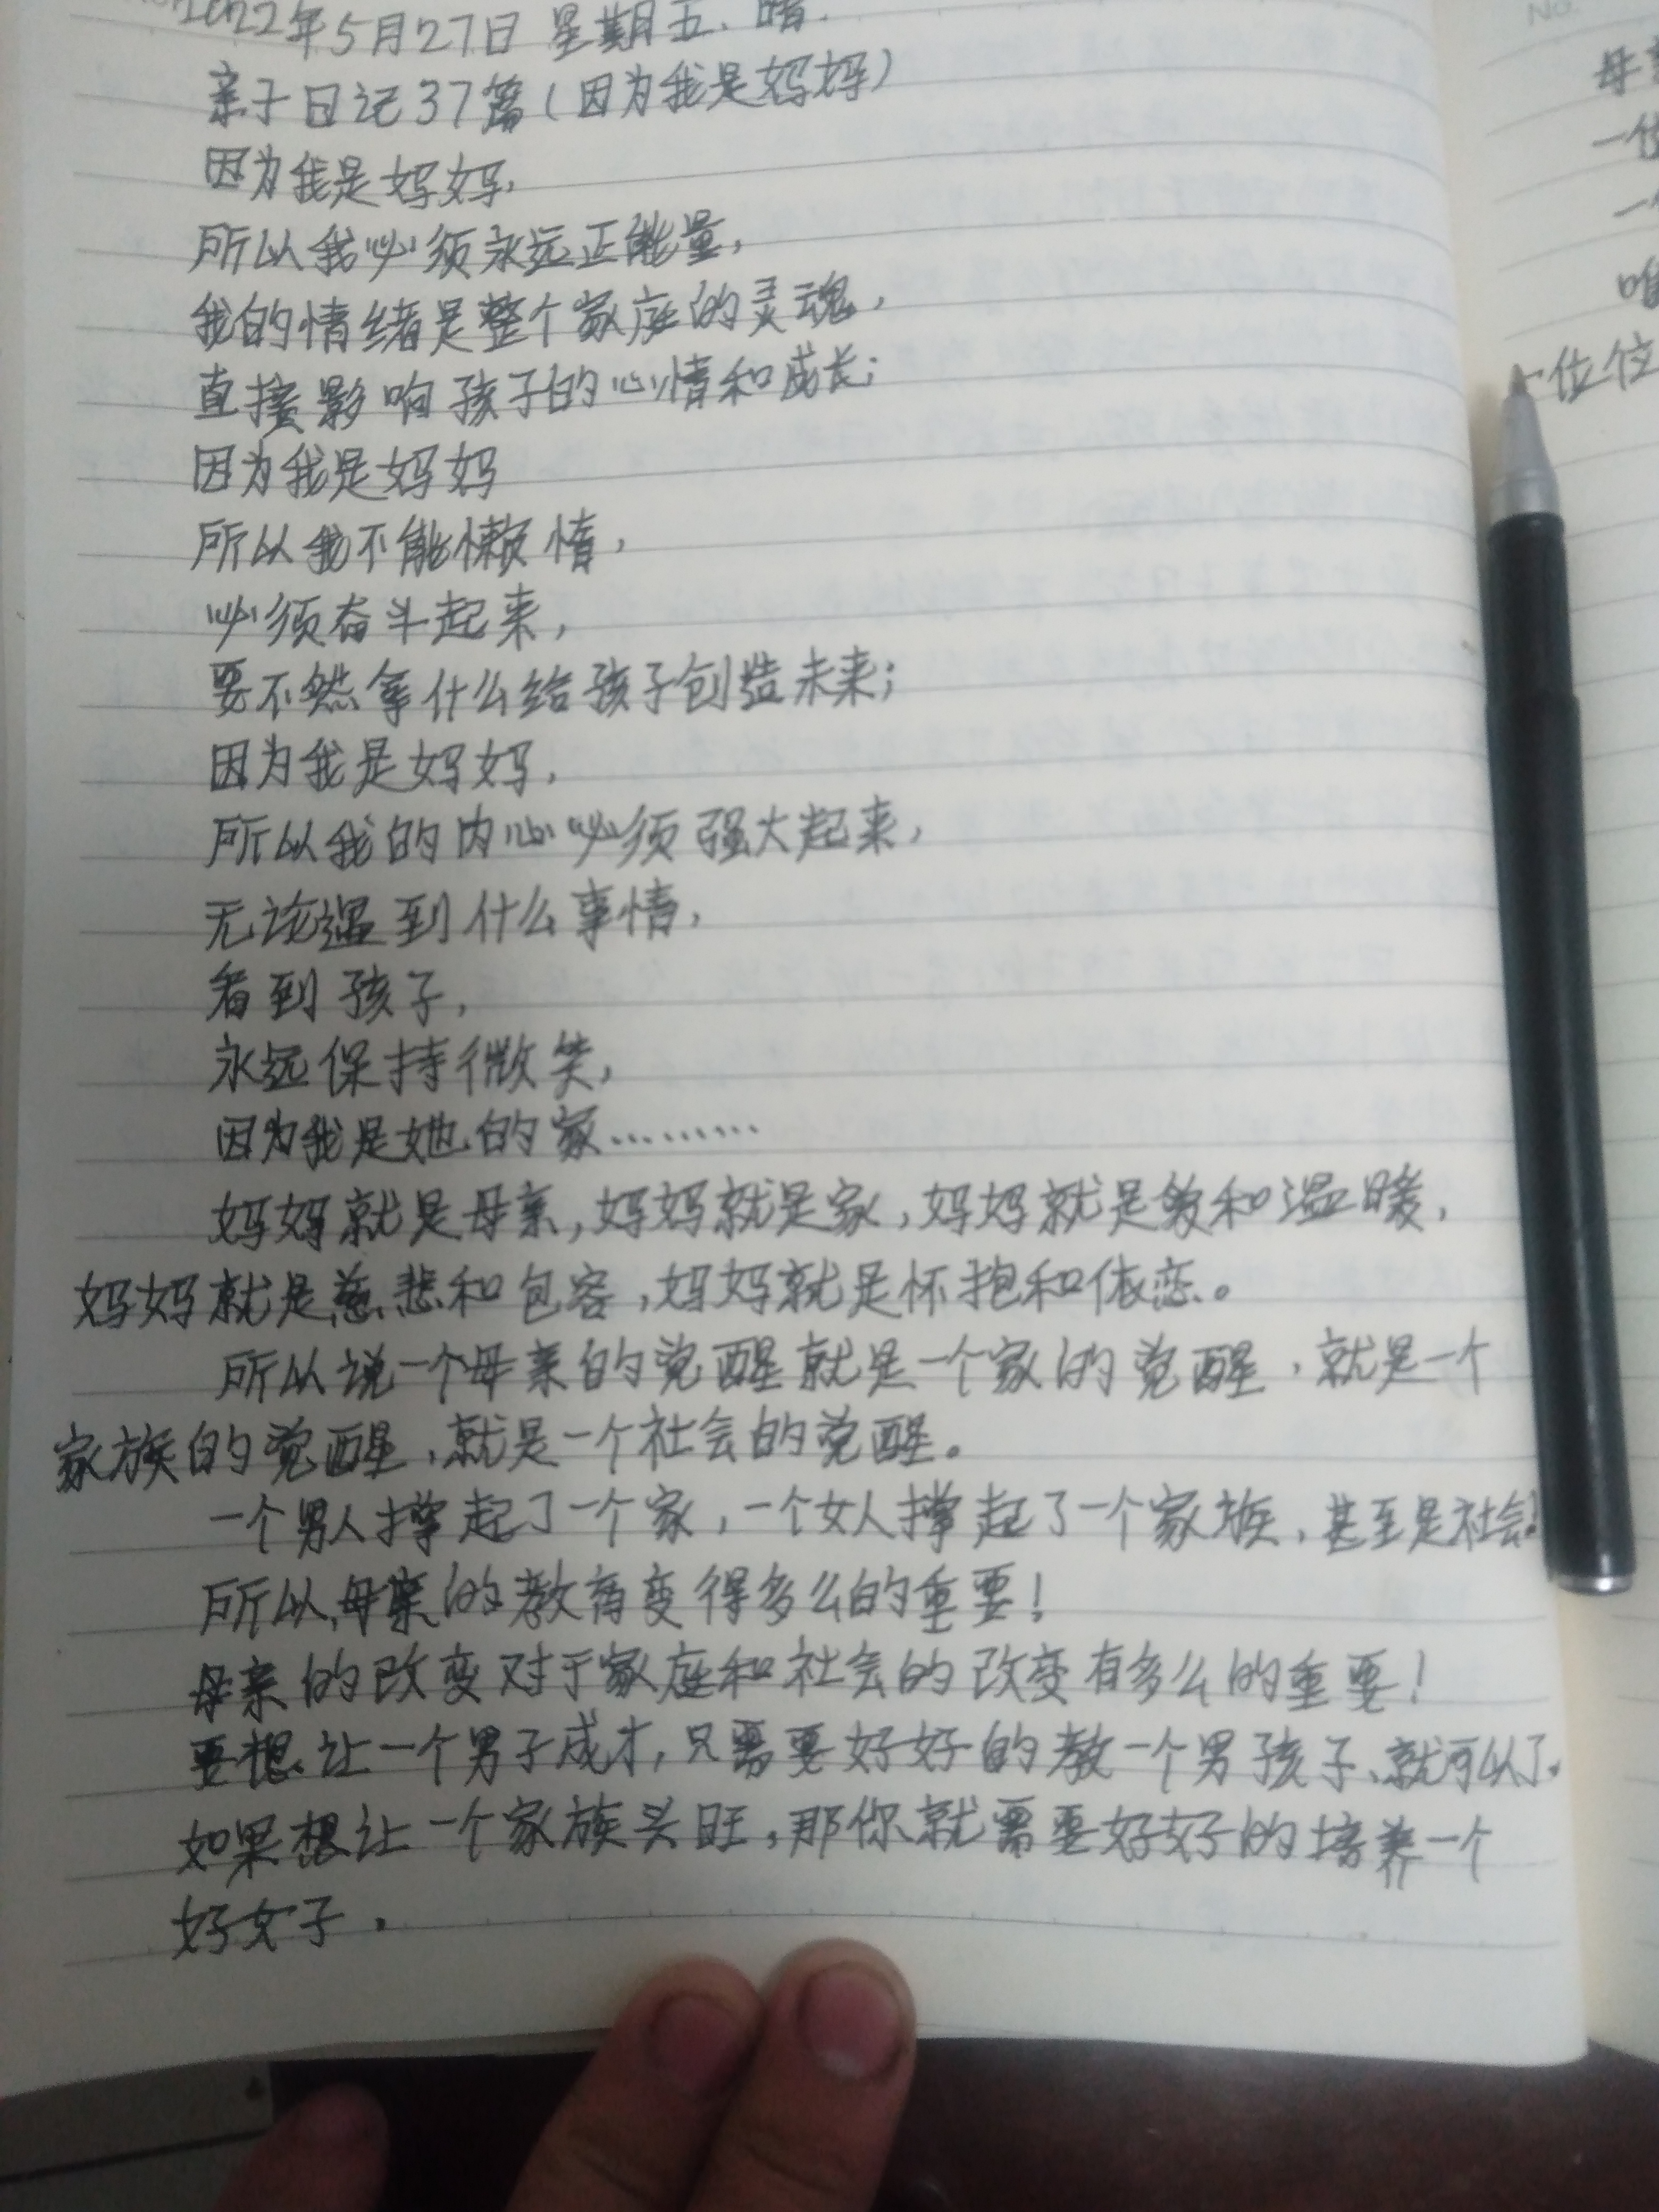 2022年5月27日 星期五. 晴.
亲子日记37篇(因为我是妈妈)
因为我是妈妈,
所以我必须永远正能量,
我的情绪是整个家庭的灵魂,
直接影响孩子的心情和成长;
因为我是妈妈
所以我不能懒惰,
必须奋斗起来,
要不然拿什么给孩子创造未来;
因为我是妈妈,
所以我的内心必须强大起来,
无论遇到什么事情,
看到孩子,
永远保持微笑,
因为我是她的家………
妈妈就是母亲,妈妈就是家,妈妈就是爱和温暖,
妈妈就是慈悲和包容,妈妈就是怀抱和依恋。
所以说一个母亲的觉醒就是一个家的觉醒,就是一个
家族的觉醒,就是一个社会的觉醒。
一个男人撑起了一个家,一个女人撑起了一个家族,甚至是社会!
所以母亲的教育变得多么的重要!
母亲的改变对于家庭和社会的改变有多么的重要!
要想让一个男子成才,只需要好好的教一个男孩子、就可以了.
如果想让一个家族兴旺,那你就需要好好的培养一个
好女子.
No.
母
一位
一
唯
一位位